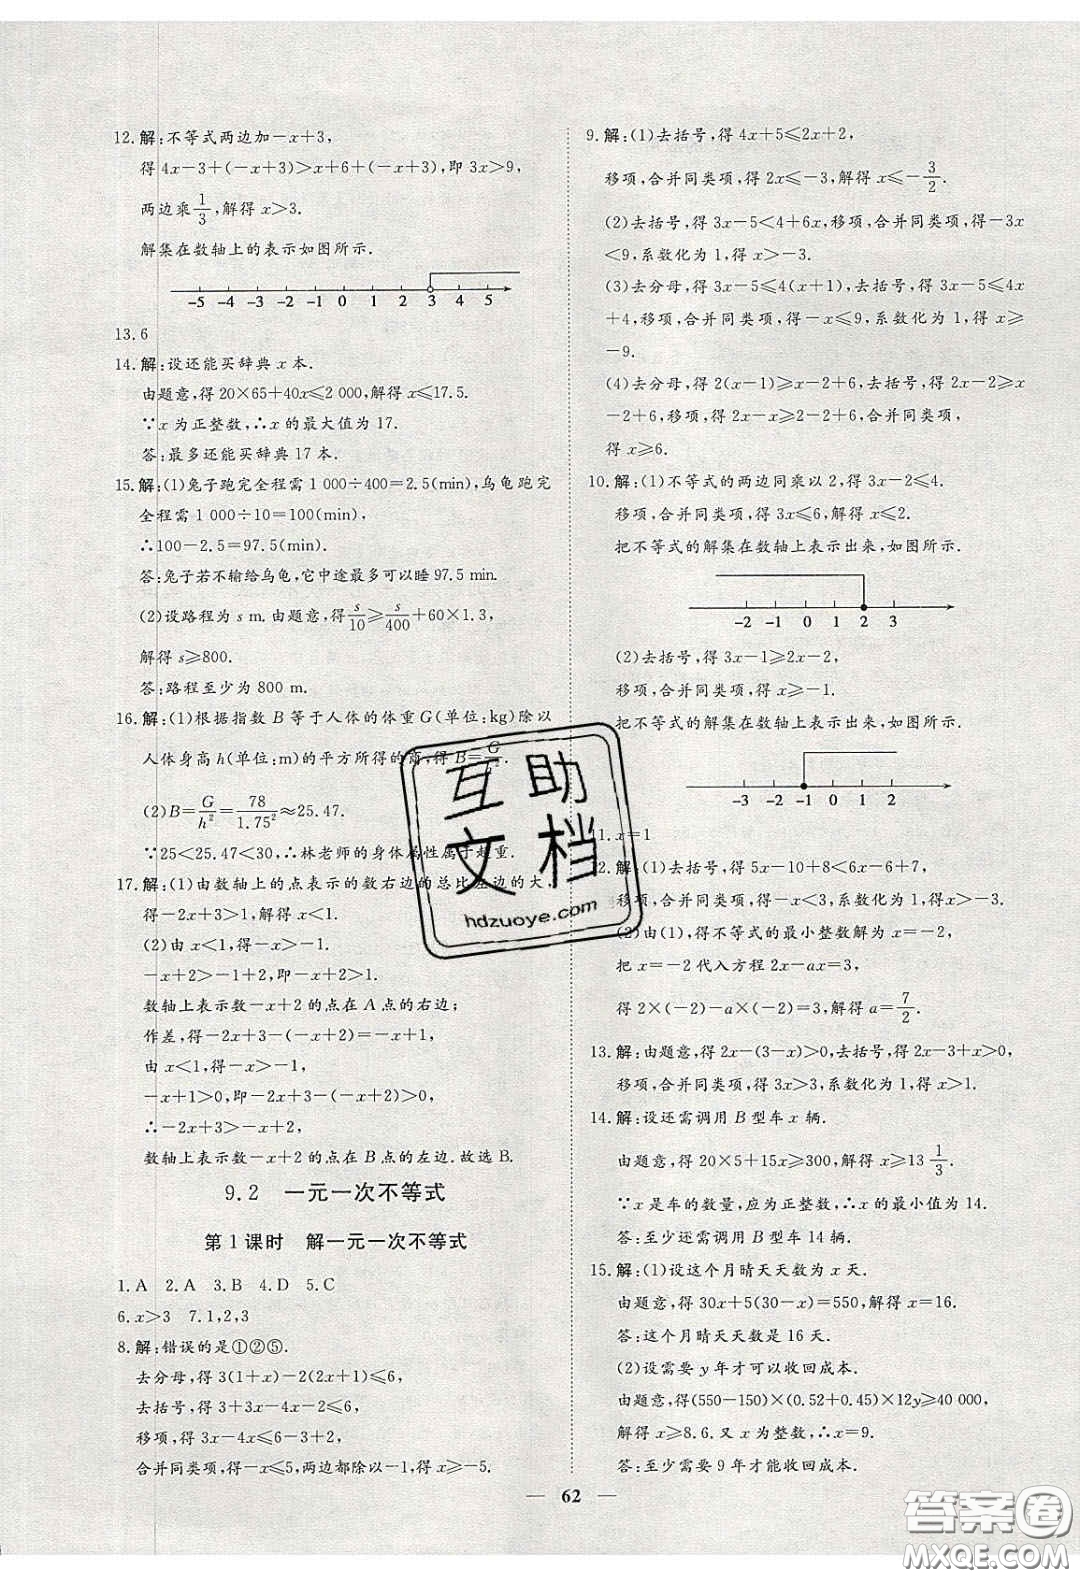 12.解:不等式两边加-x+3,
得 4x-3+(-x+3)>x+6+(-x+3),即 3x>9,
两边乘1/3,解得 x>3.
解集在数轴上的表示如图所示.
-5 -4 -3 -2 -1 0 1 2 3 4 5
13.6
14.解:设还能买辞典 x 本.
由题意,得 20×65+40x≤2 000,解得 x≤17.5.
∵x 为正整数,∴x 的最大值为 17.
答:最多还能买辞典 17 本.
15.解:(1)兔子跑完全程需 1 000÷400=2.5(min),乌龟跑完
全程需 1 000÷10=100(min),
∴100-2.5=97.5(min).
答:兔子若不输给乌龟,它中途最多可以睡 97.5 min.
(2)设路程为 s m.由题意,得s/10≥s/400+60×1.3,
解得 s≥800.
答:路程至少为 800 m.
16.解:(1)根据指数 B 等于人体的体重 G(单位:kg)除以
人体身高 h(单位:m)的平方所得的商,得 B=G/h².
(2)B=G/h²=78/1.75²≈25.47.
∵25<25.47<30,∴林老师的身体属性属于超重.
17.解:(1)由数轴上的点表示的数右边的总比左边的大,
得-2x+3>1,解得 x<1.
(2)由 x<1,得-x>-1.
-x+2>-1+2,即-x+2>1.
数轴上表示数-x+2 的点在 A 点的右边;
作差,得-2x+3-(-x+2)=-x+1,
由 x<1,得-x>-1,
-x+1>0,
∴-2x+3>-x+2,
数轴上表示数-x+2 的点在 B 点的左边.故选 B.
9.2 一元一次不等式
第 1 课时 解一元一次不等式
1.A 2.A 3.B 4.D 5.C
6.x>3 7.1,2,3
8.解:错误的是①②⑤.
去分母,得 3(1+x)-2(2x+1)≤6,
去括号,得 3+3x-4x-2≤6,
移项,得 3x-4x≤6-3+2,
合并同类项,得-x≤5,两边都除以-1,得 x≥-5.
9.解:(1)去括号,得 4x+5≤2x+2,
移项,合并同类项,得 2x≤-3,解得 x≤-3/2.
(2)去括号,得 3x-5<4+6x,移项,合并同类项,得-3x
<9,系数化为 1,得 x>-3.
(3)去分母,得 3x-5≤4(x+1),去括号,得 3x-5≤4x
+4,移项,合并同类项,得-x≤9,系数化为 1,得 x≥
-9.
(4)去分母,得 2(x-1)≥x-2+6,去括号,得 2x-2≥x
-2+6,移项,得 2x-x≥2-2+6,合并同类项,
得 x≥6.
10.解:(1)不等式的两边同乘以 2,得 3x-2≤4.
移项,合并同类项,得 3x≤6,解得 x≤2.
把不等式的解集在数轴上表示出来,如图所示.
-2 -1 0 1 2 3
(2)去括号,得 3x-1≥2x-2,
移项,合并同类项,得 x≥-1.
把不等式的解集在数轴上表示出来,如图所示.
-3 -2 -1 0 1 2
11.x=1
12.解:(1)去括号,得 5x-10+8<6x-6+7,
移项,合并同类项,得-x<3,解得 x>-3.
(2)由(1),得不等式的最小整数解为 x=-2,
把 x=-2 代入方程 2x-ax=3,
得 2×(-2)-a×(-2)=3,解得 a=7/2.
13.解:由题意,得 2x-(3-x)>0,去括号,得 2x-3+x>0,
移项,合并同类项,得 3x>3,系数化为 1,得 x>1.
14.解:设还需调用 B 型车 x 辆.
由题意,得 20×5+15x≥300,解得 x≥13 1/3.
∵x 是车的数量,应为正整数,∴x 的最小值为 14.
答:至少还需调用 B 型车 14 辆.
15.解:(1)设这个月晴天天数为 x 天.
由题意,得 30x+5(30-x)=550,解得 x=16.
答:这个月晴天天数是 16 天.
(2)设需要 y 年才可以收回成本.
由题意,得(550-150)×(0.52+0.45)×12y≥40 000,
解得 x≥8.6.又 x 为整数,∴x=9.
答:至少需要 9 年才能收回成本.
— 62 —
互助
文档
hdzuoye.com
答案圈
MXQE.COM